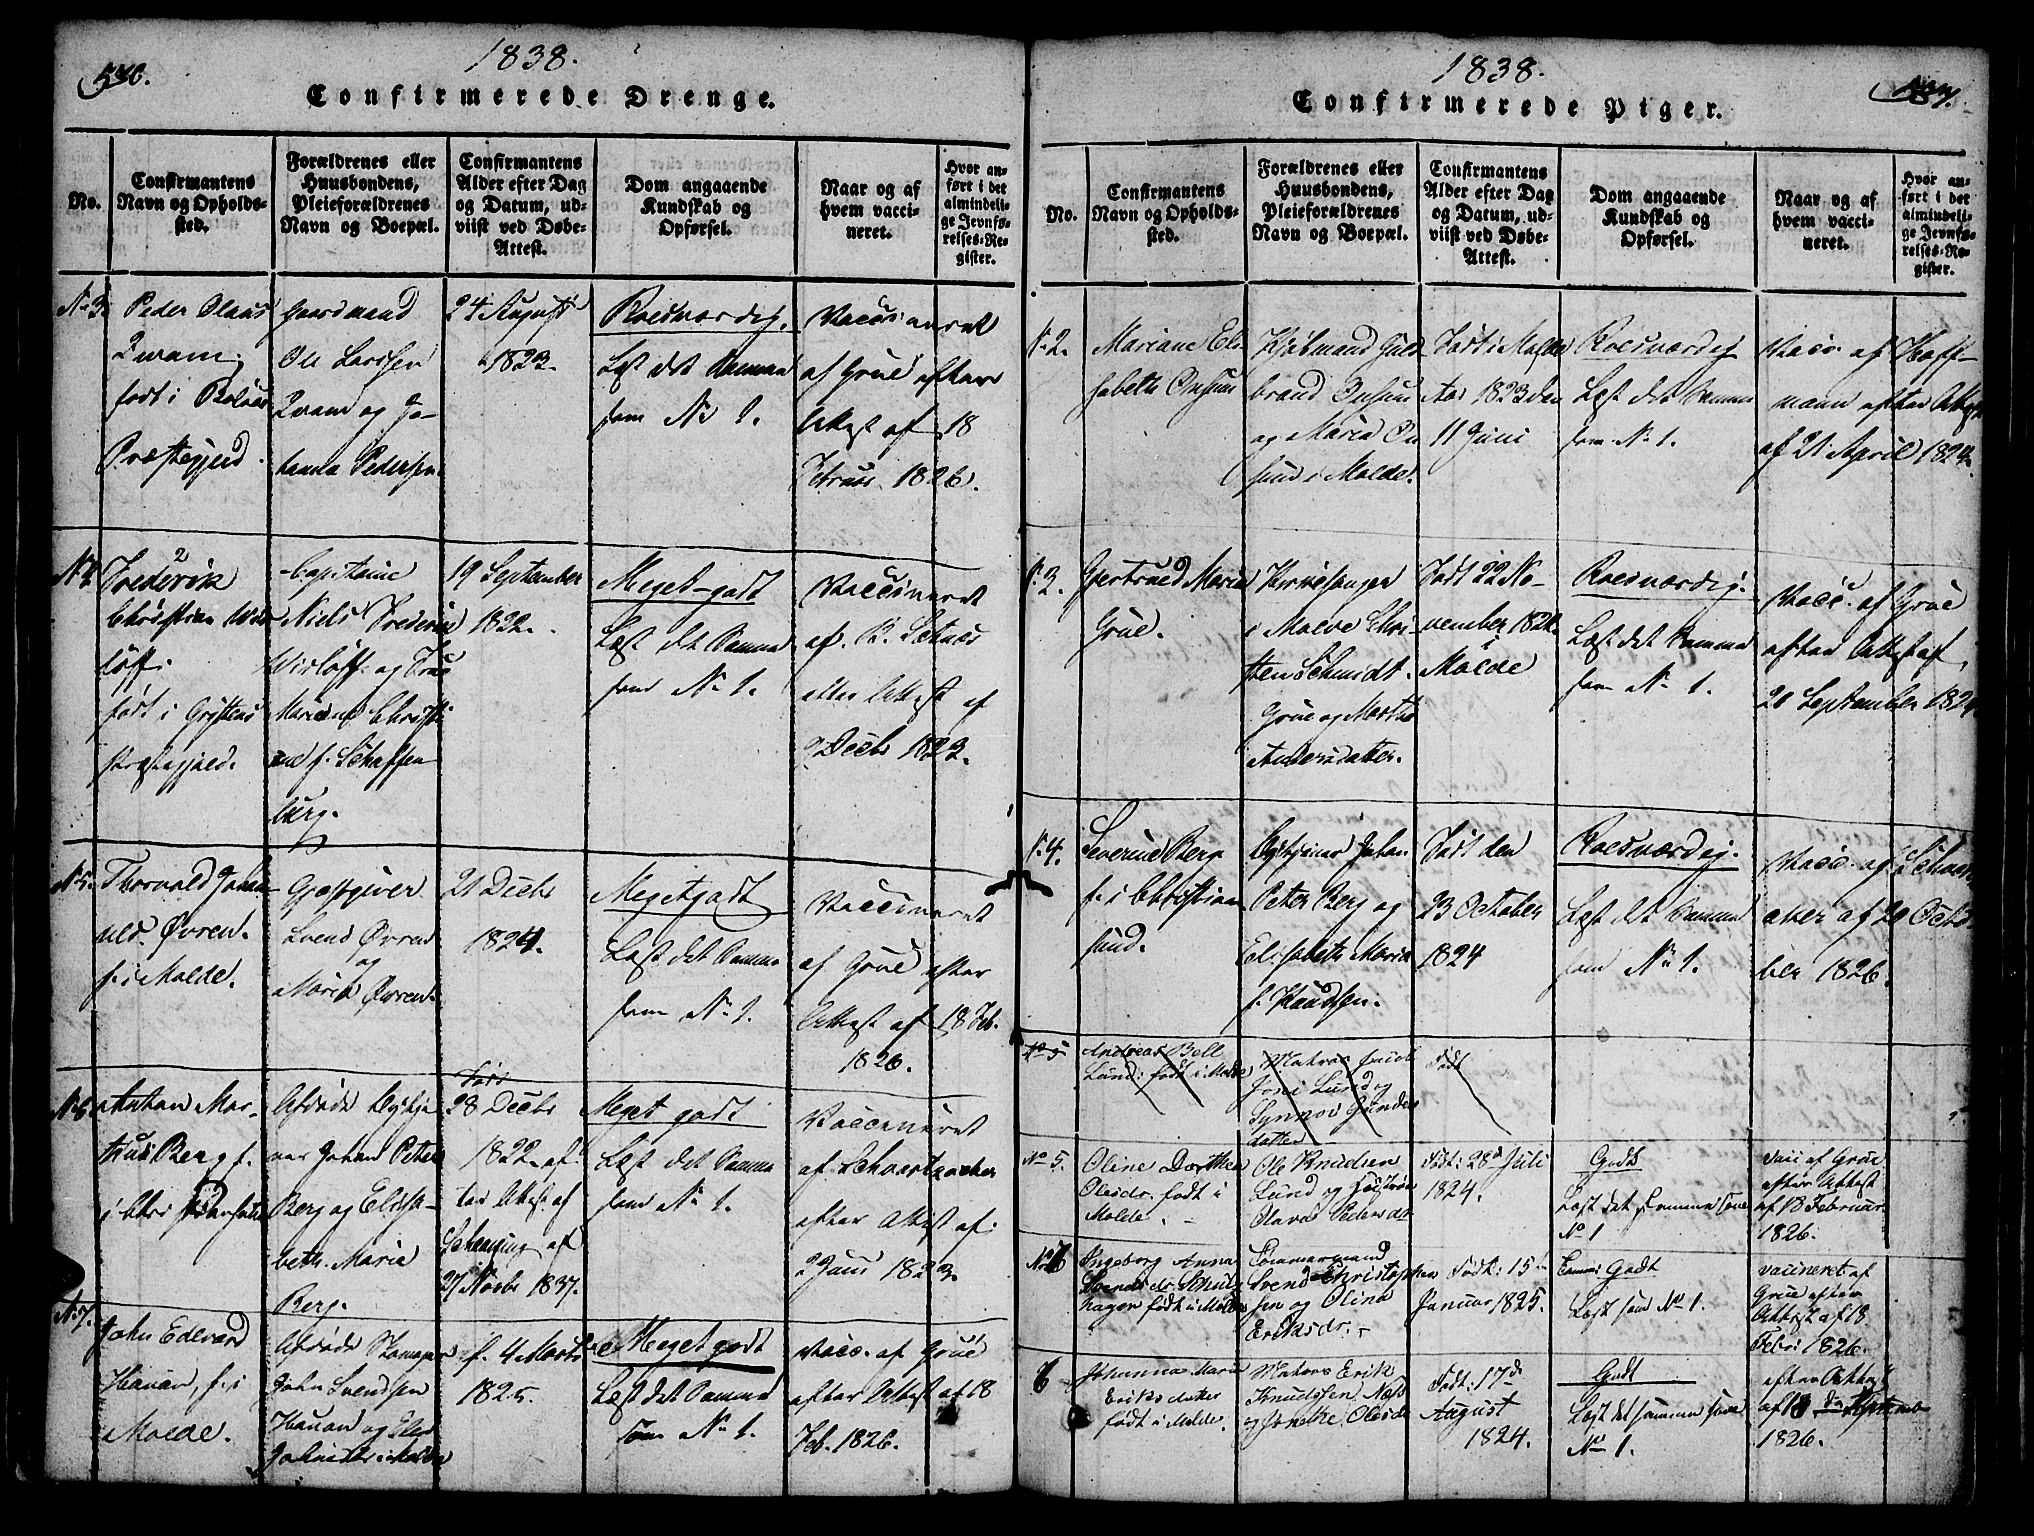 586.
1838.
Confirmerede Drenge.
No.
Confirmantens
Navn og Opholds-
sted.
Forældrenes eller
Huusbondens,
Pleieforældrenes
Navn og Boepæl.
Confirmantens
Alder efter Dag
og Datum, ud-
viist ved Døbe-
Attest.
Dom angaaende
Kundskab og
Opførsel.
Naar og af
hvem vacci-
neret.
Hvor an-
ført i det
almindeli-
ge Jevnfø-
relses-Re-
gister.
No 3.
Peder Olaus
Qvam,
født i Bolsøe
Præstegjeld.
Gaardmand
Ole Larssen
Qvam og Jo-
hanna Pedersen.
24 August
1823.
Roesværdig.
Læst det Samme
som No 1.
Vaccineret
af Grue efter
Attest af 18
Februar 1826.
No 4.
Frederik
Christian Wis-
løff.
født i Gryttens
Præstegjeld.
Capitaine
Niels Frederik
Wisløff og
Mariane Christi-
ane f. Schaffen
burg.
19 September
1822.
Meget-godt
Læst det Samme
som No 1.
Vaccineret
af B. Sætnæs
efter Attest af
Decbr 1823.
No 5.
Thorvald Johan
nes Øvren.
f. i Molde.
Gjæstgiver
Svend Øvren
og
Maria Øvren.
21 Decbr
1824.
Meget godt
Læst det Samme
som No 1.
Vaccineret
af Grue efter
Attest af 18 Feb.
1826.
No 6.
Anton Mar-
tius Berg f.
i Christiansund
Afdøde
Johan Peter
Berg og Elisa-
beth Marie
Berg.
Født
28 Decbr
1822 ef-
ter Attest af
af
27 Novbr 1837.
Meget godt
Læst det Samme
som No 1.
Vaccineret
af Schvartzacher
efter Attest af
2 Juni 1823.
No 7.
John Edevard
Hauan, f. i
Molde.
Afdøde
John Svendsen
Hauan og Elen
Johnsdtr i Molde
f. 4 Marts
1825.
Meget godt
Læst det Samme
som No 1.
Vacc. af Grue
efter Attest af 18
Feb. 1826.
1838.
Confirmerede Piger.
587.
No.
Confirmantens
Navn og Opholds-
sted.
Forældrenes eller
Huusbondens,
Pleieforældrenes
Navn og Boepæl.
Confirmantens
Alder efter Dag
og Datum, ud-
viist ved Døbe-
Attest.
Dom angaaende
Kundskab og
Opførsel.
Naar og af
hvem vacci-
neret.
Hvor an-
ført i det
almindeli-
ge Jevnfø-
relses-Re-
gister.
No 2.
Mariane Eli-
sabeth Onsum
Kjøbmand Guld-
brand Onsum
og Maria On
sum i Molde.
Født i Molde
Aar 1823 den
11 Juni
Roesværdig
Læst det Samme
som No 1.
Vacc. af Hoff-
mann efter Attest
af 21 April 1824.
No 3.
Gjertrued Maria
Grue.
Kirkesanger
i Molde Chri-
sten Schmidt
Grue og Marthe
Andersdatter.
Født 22 No-
vember 1824
i
Molde
Roesværdig.
Læst det Samme
som No 1.
Vacc. af Grue
efter Attest af
20 September 1824.
No 4.
Severine Berg
f. i Christian
sund.
Johan
Peter Berg og
Elisabeth Maria
f. Knudssen.
Født den
23 October
1824
Roesværdig.
Læst det Samme
som No 1.
Vacc. af Schvartz
acher af 20 Octo
ber 1826.
No 5
Andreas Bell
Lund: født i Molde
Matros
Joni Lund og
Synnøv Gunders
datter
Født
No 5.
Oline Dorthea
Olesdr. født i
Molde.
Ole Knudsen
Lund og
Olava Pedersdr
Født: 28de Juli
1824.
Godt
Læst det samme som
No 1
Vacc af Grue
efter Attest
af 18 Februar
1826.
No 6
Ingeborg Anna
Svendsdr Schul
hagen født i Molde
Tømmermand
Svend Christopher
sen og Olina
Eriksdr.
Født: 15de
Januar 1825.
Godt
Læst som No 1.
vaccineret af
Grue efter
Attest af 18
Febr 1826.
6
Johanna Marie
Eriksdatter
født i Molde.
Matros Erik
Knudssen Næss
og Johetha Olesdr
Født: 17de
August
1824.
Godt
Læst det samme som
No 1.
efter Attest
af 18 de September
1826.